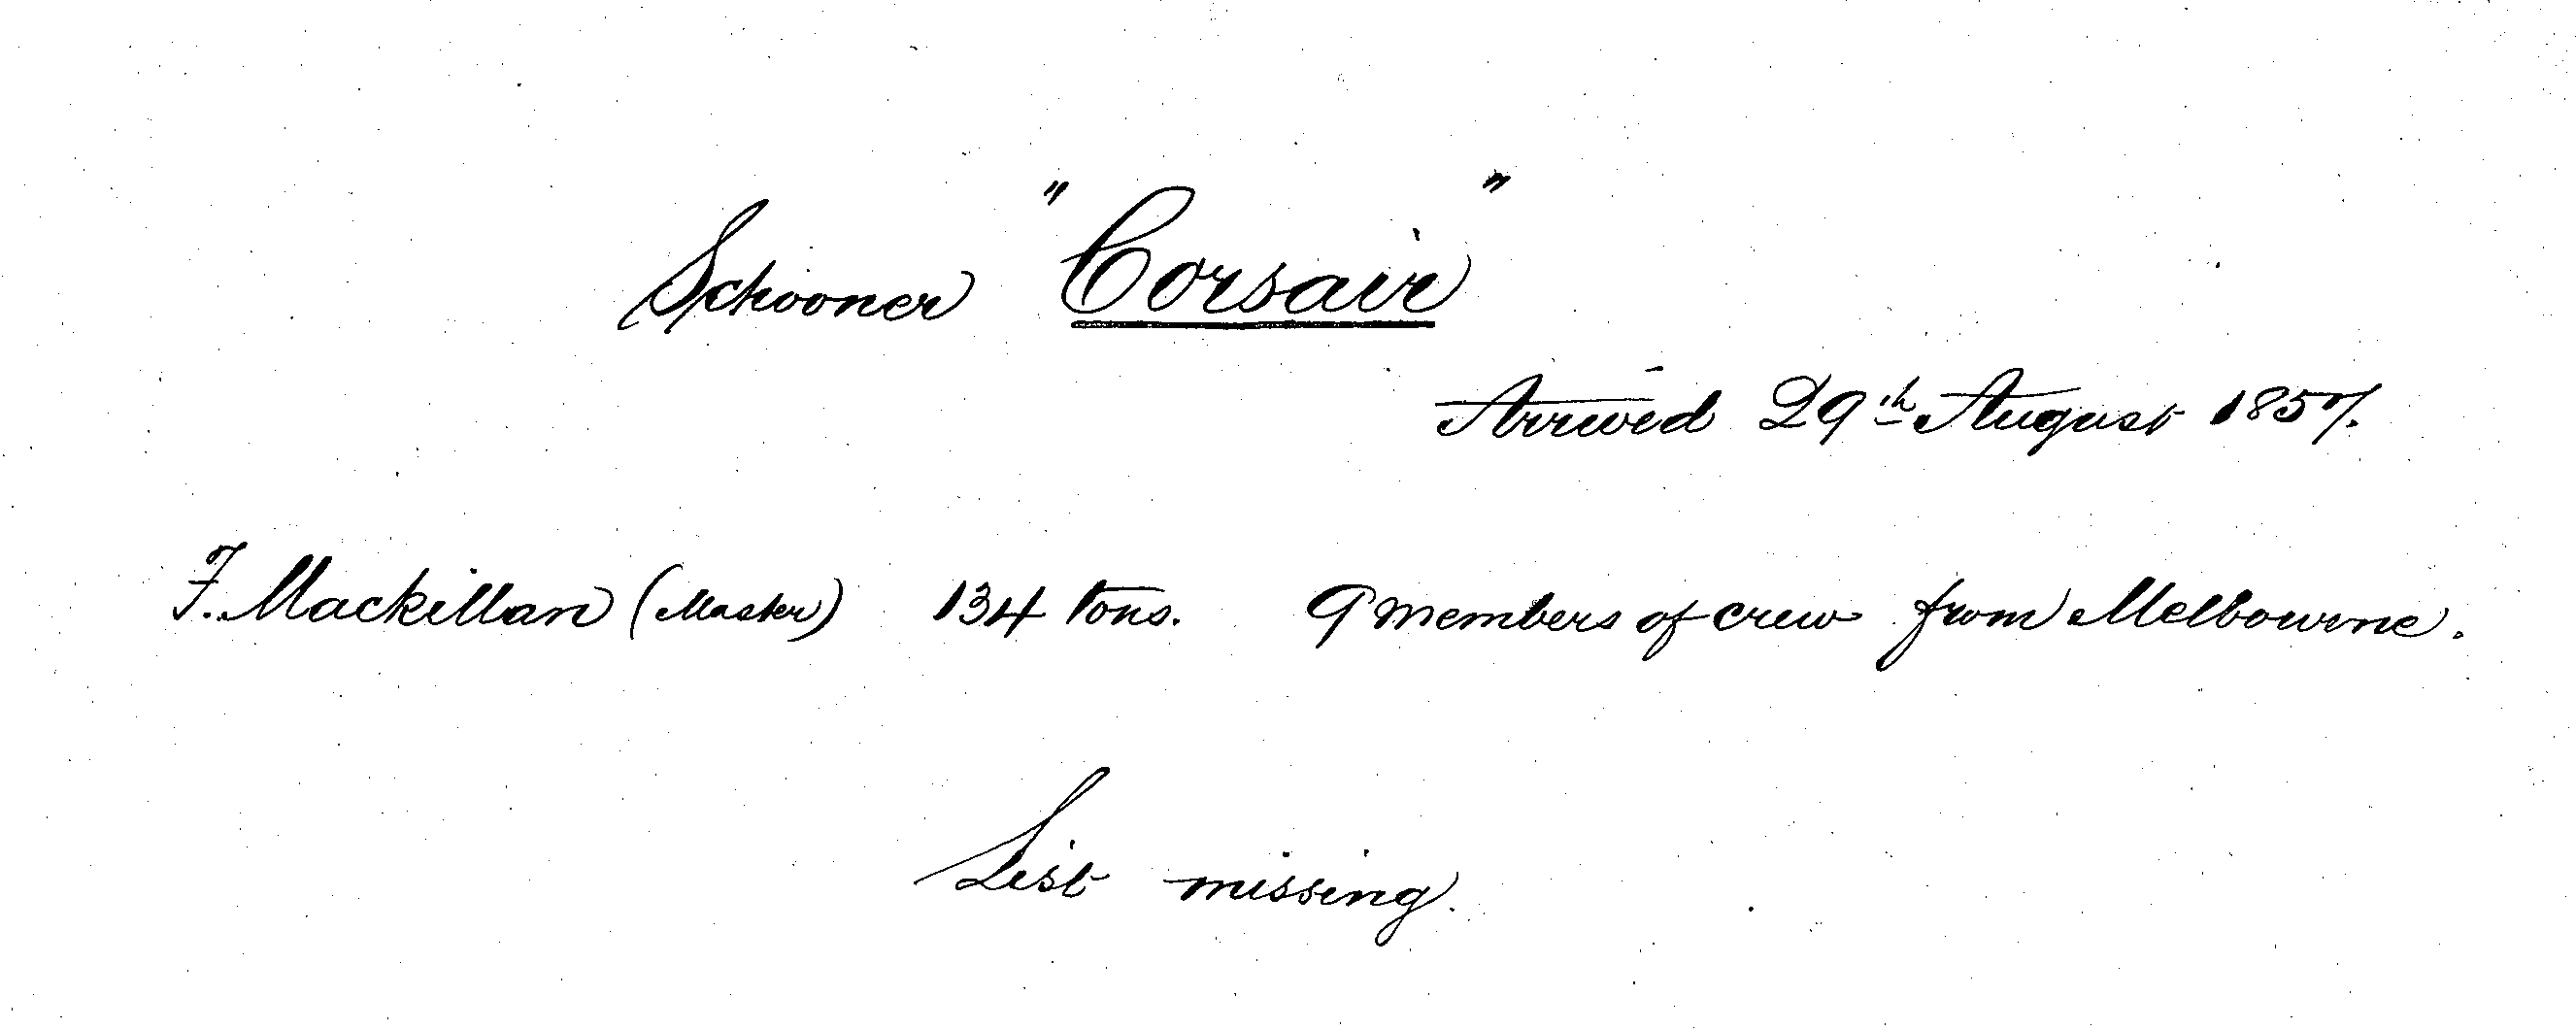 Schooner "Corsair"
Arrived 29th August 1857.
F. Mackillan (Master) 134 tons. 9 members of crew from Melbourne.
List missing.